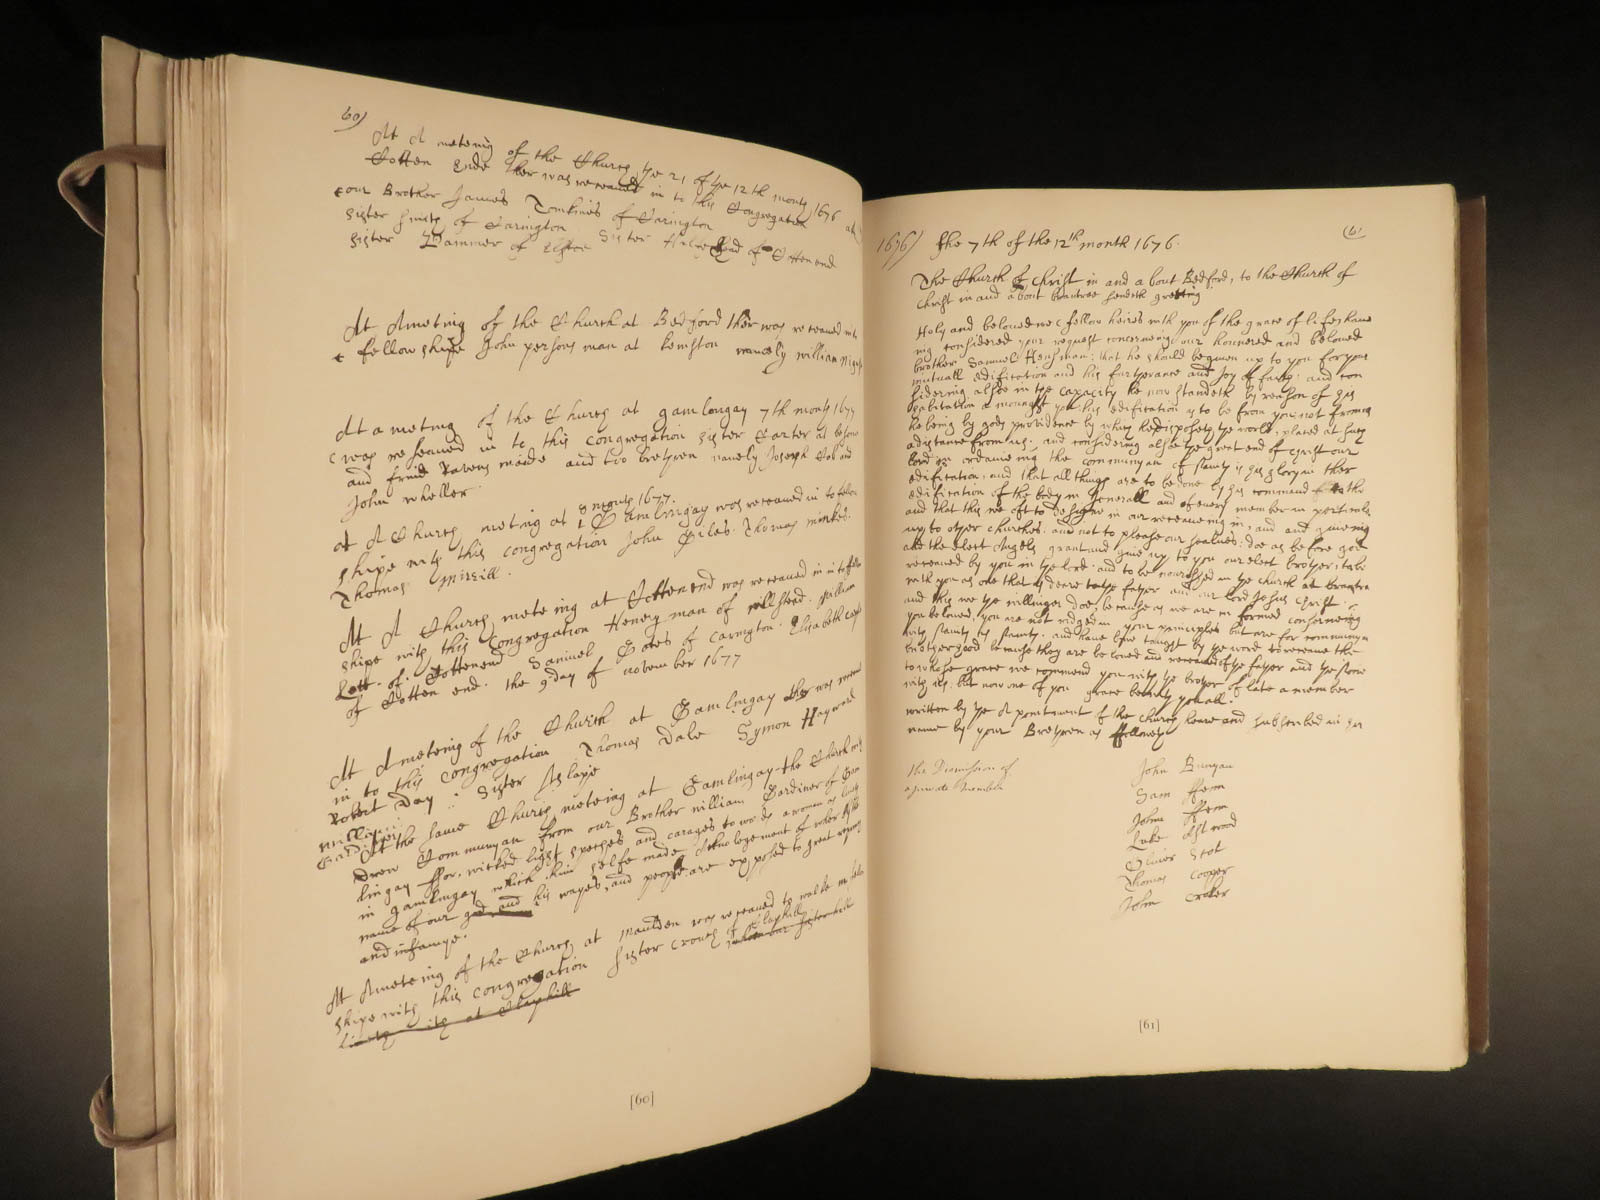 60)
At A meteing of the Church the 21 of the 12th month 1676 at
Cotten Ende ther was receaued in to this Congregation
our Brother James Tomkines of Carington
Sister Smith of Carington Sister
Sister of Elstee of Cotten end
At A meting of the Church at Bedford ther was receaued into
fellowshipe John persons man at kemston namely william
At a meting of the Church at gamlongay 7th month 1677
was receaued in to this congregation sister Carter
and frind maide and two bretheren namely Joseph and
John wheller.
8 month 1677.
at A Church meting at Gamlingay was receaued in to fellow
shipe with this congregation John Giles. Thomas
Thomas
At A Church meteing at Cottenend was receaued in to fellow
shipe with this Congregation Henery man of willstead. william
Lott. of. Cottenend Samuel Gates of Carington. Elisabeth
of Cotten end. the 9 day of november 1677
At A meteing of the Church at Gamlingay ther was receaued
in to this congregation Thomas Dale Symon Hayward
Robert Day :: Sister Aslape
At the same Church meteing at Gamlingay the Church with
drew Communyan from our Brother william Gardiner of Gam
lingay ffor. wicked light speches and carages to wards a woman
in gamlingay which him selfe made Acknologement of wher
name of our god and his wayes, and people are exposed to great
and infamye.
At A meteing of the Church at maulden was receaued to walke in fellow
shipe with this congregation Sister Crouch of Claphill
at Claphill
[60]
1676) The 7th of the 12th month 1676.
61
The Church of Christ in and about Bedford, to the Church of
Christ in and about Braintree sendeth greeting
Holy and beloued fellow heires with you of the grace of life haue
ing considered your request concerneing our honnered and beloued
brother Samuel Hensman; that he should be giuen up to you for your
mutuall edification and his furtherance and Joy of faith: and con
sidering allso in the capacity he now standeth by reason of his
habitation amoungst you his edification is to be from you, not from us
he being by gods prouidence by which he disposeth the world, placed at such
a distance from us: and considering allso the great end of christ our
lord in ordaineing the communyan of saints is his glory in ther
edification, and that all things are to be done by his command to the
edification of the body in generall and of euery member in perticuler
and that this we oft to designe in our receaueing in, and and giueing
up to other churches. and not to please our selues: doe as before god
and the elect Angels grant and giue up to you our elect brother, to be
receaued by you in the lord. and to be nourished in the church at braintre
with you as one that is deare to the father and our lord Jesus Christ.
and this we the willinger doe, because as we are in formed concerneing
you beloued, you are not ridged in your principles but are for communyan
with saints as saints. and haue bene taught by the word to receaue the
brotherhood because they are beloued and receaued of the father and the sone
to whose grace we commend you with the brother of late a member
with us. but now one of you grace be with you all.
written by the A pointment of the church heare and subscribed in her
name by your Bretheren as followeth
the Dismission of
a private Member
John Bunyan
Sam ffenn
John ffenn
Luke Astwood
Oliuer Scot
Thomas Cooper
John Croker
[61]